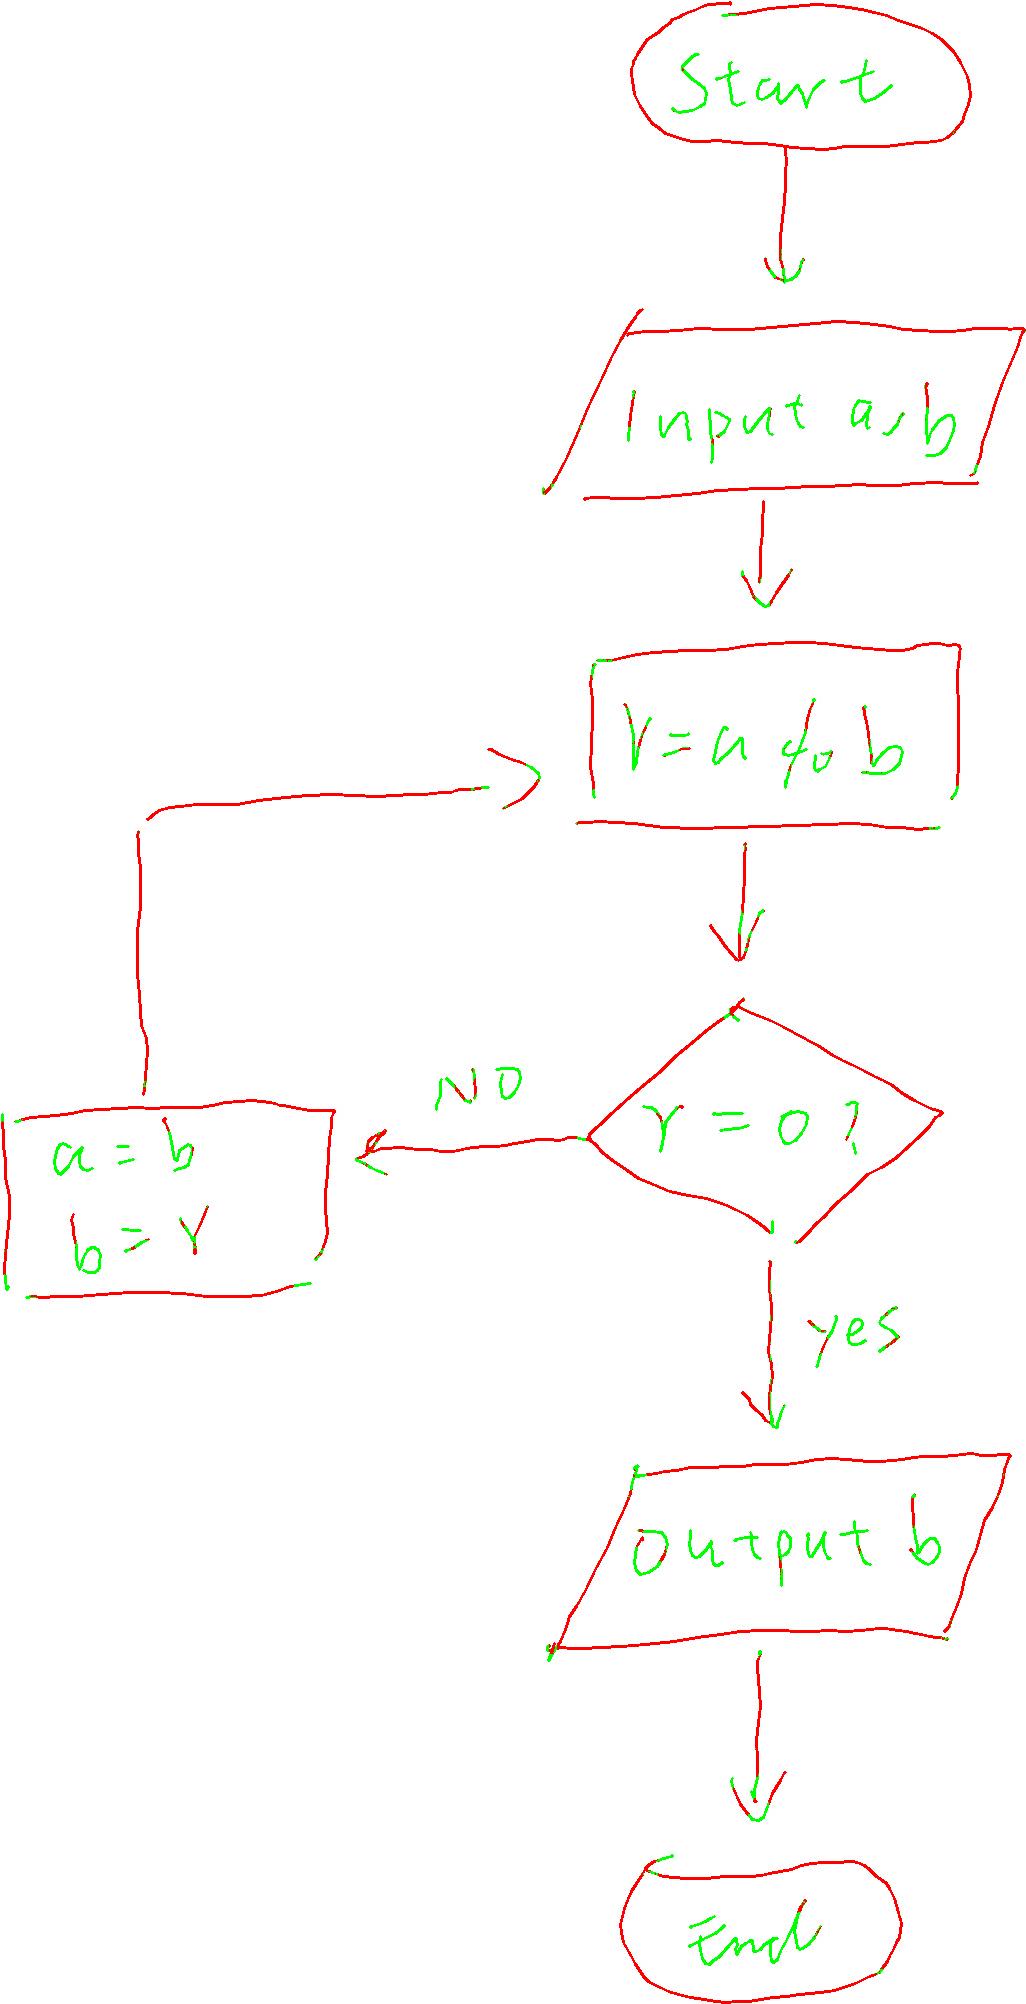 Start
Input a, b
r = a % b
r = 0 ?
NO
a = b
b = r
yes
output b
End